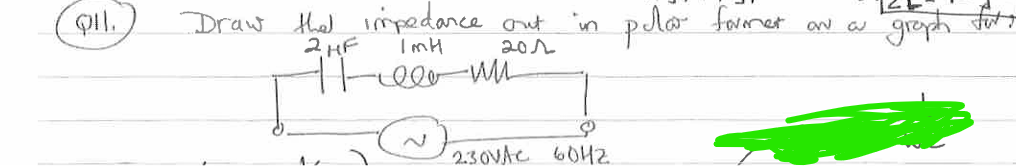 Q11. Draw the impedance out in polar format on a graph for:
2µF 1mH 20Ω
~
230VAC 60HZ